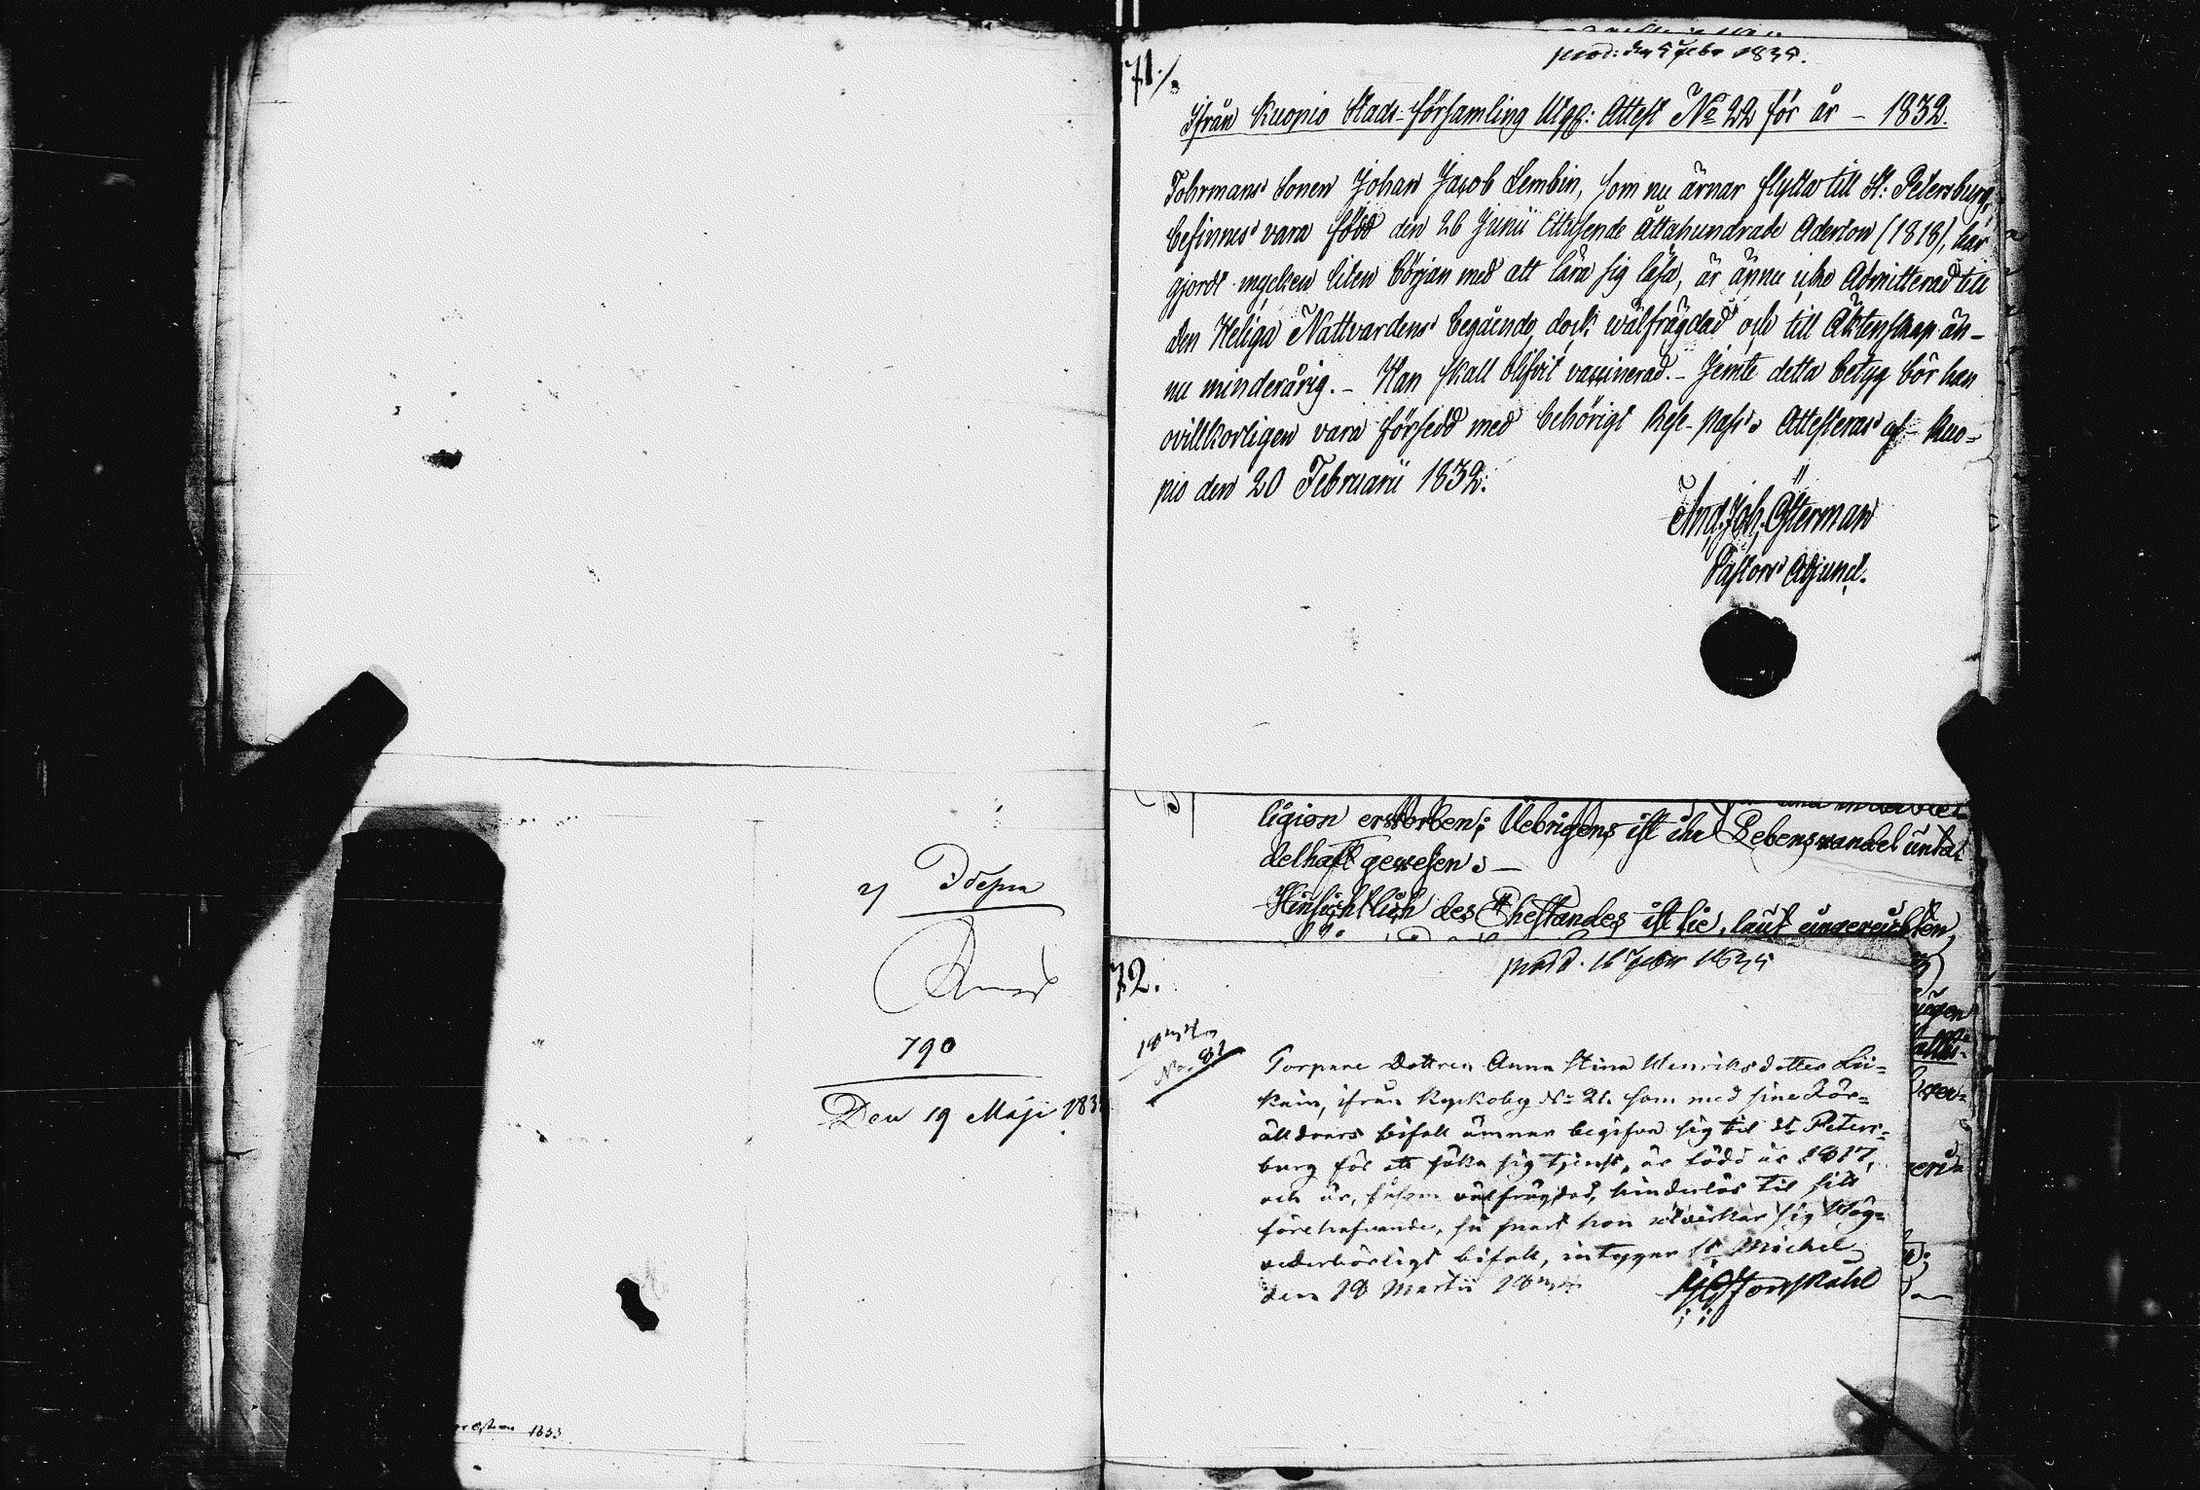 790
Den 19 Maji 183
1833
prod: den 5 Febr 1835.
71./.
Ifrån Kuopio Stads-församling Utgg: Attest No 22 för år – 1832.
Johan Jacob Lembin, som nu ärnar flytta till St: Petersburg,
befinnes vara född den 26 Junii Ettusende Åttahundrade Aderton (1818), har
gjort mycken liten början med att lära sig läsa, är ännu icke Admitterad till
den Heliga Nattvardens begående, dock wälfrägdad och till Äktenskap än-
nu minderårig. – Han skall blifvit vaccinerad. – Jemte detta betyg bör han
ovillkorligen vara försedd med behörigt Rese-pass. Attesteras af – Kuo=
pio den 20 Februarii 1832.
And. Joh. Österman
Pastors Adjunct.
ligion erstorben; Uebrigens ist ihr Lebenswandel unta
delhaft gewesen. –
Hinsichtlich des Ehestandes ist sie, laut eingereichten,
72.
No. 81
Torpare Dottren Anna Stina Henriksdotter Lii=
kain, ifrån Kyrkoby No 21. som med sine För=
älldrars bifall ämnar begifva sig til St. Peters=
burg för att söka sig tjenst, är född år 1817,
och är, såsom välfrägdad, hinderlös til sitt
förehafvande, så snart hon utverkar sig Hög=
vederbörligt bifall, intygar St. Michel
den 18 Martii